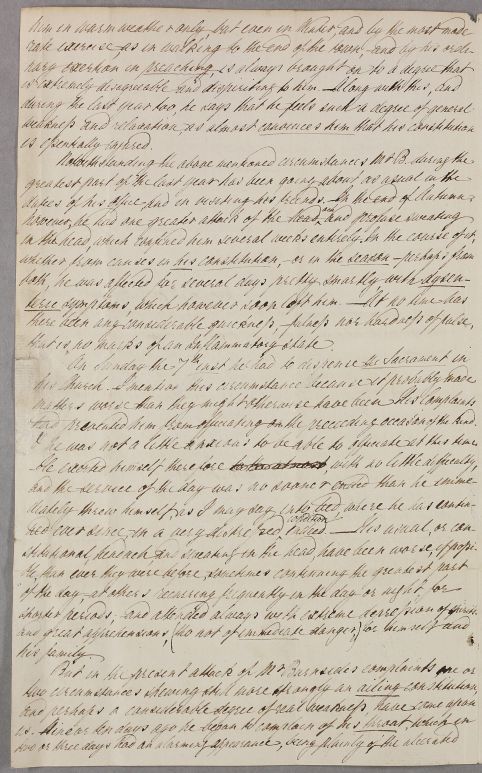 him in warm weather only but even in Winter and by the most mode
rate exercise as in walking to the end of the town and by his ordi
nary exertion in preaching, is always brought on to a degree that
is extremely disagreeable and dispiriting to him. Along with this, and
during the last year too, he says that he feels such a degree of general
weakness and relaxation as almost convinces him that his constitution
is essentially injured.
Notwithstanding the above mentioned circumstances Mr B. during the
greatest part of the last year has been going about as usual in the
duties of his office and in visiting his friends. In the end of Autumn
however, he had one greater attack of the head, and profuse sweating
in the head which confined him several weeks entirely. In the course of it,
whether from causes in his constitution, or in the season - perhaps from
both, he was affected for several days pretty smartly with dysen-
teric symptoms, which however soon left him. At no time has
there been any considerable quickness, fulness nor hardness of pulse,
that is, no marks of an inflammatory state.
On Sunday the 7th inst he had to dispense the Sacrament in
his Church. I mention this circumstance because it probably made
matters worse than they might otherwise have been. His complaints
had prevented him from officiating on the preceeding occasion of the kind
& he was not a little anxious to be able to officiate at this time
He exerted himself therefore with no little difficulty,
and the service of the day was no sooner ended than he imme
diately threw himself, as I may say, into bed, where he has contin
ued ever since, in a very distressed situation. His usual, or con
stitutional, headach, and sweating in the head, have been worse, if possi-
ble, than ever they were before, sometimes continuing the greatest part
of the day - at others recurring frequently in the day or night, for
shorter periods, and attended always with extreme depression of spirits
and great apprehensions, (tho not of immediate danger,) for himself and
his family.
But in the present attack of Mr Burnside's complaints one or
two circumstances shewing still more strongly an ailing constitution,
and perhaps a considerable degree of real weakness have come upon
us. Nine or ten days ago he began to complain of his throat which in
two or three days had an alarming appearance, being plainly of the ulcerated